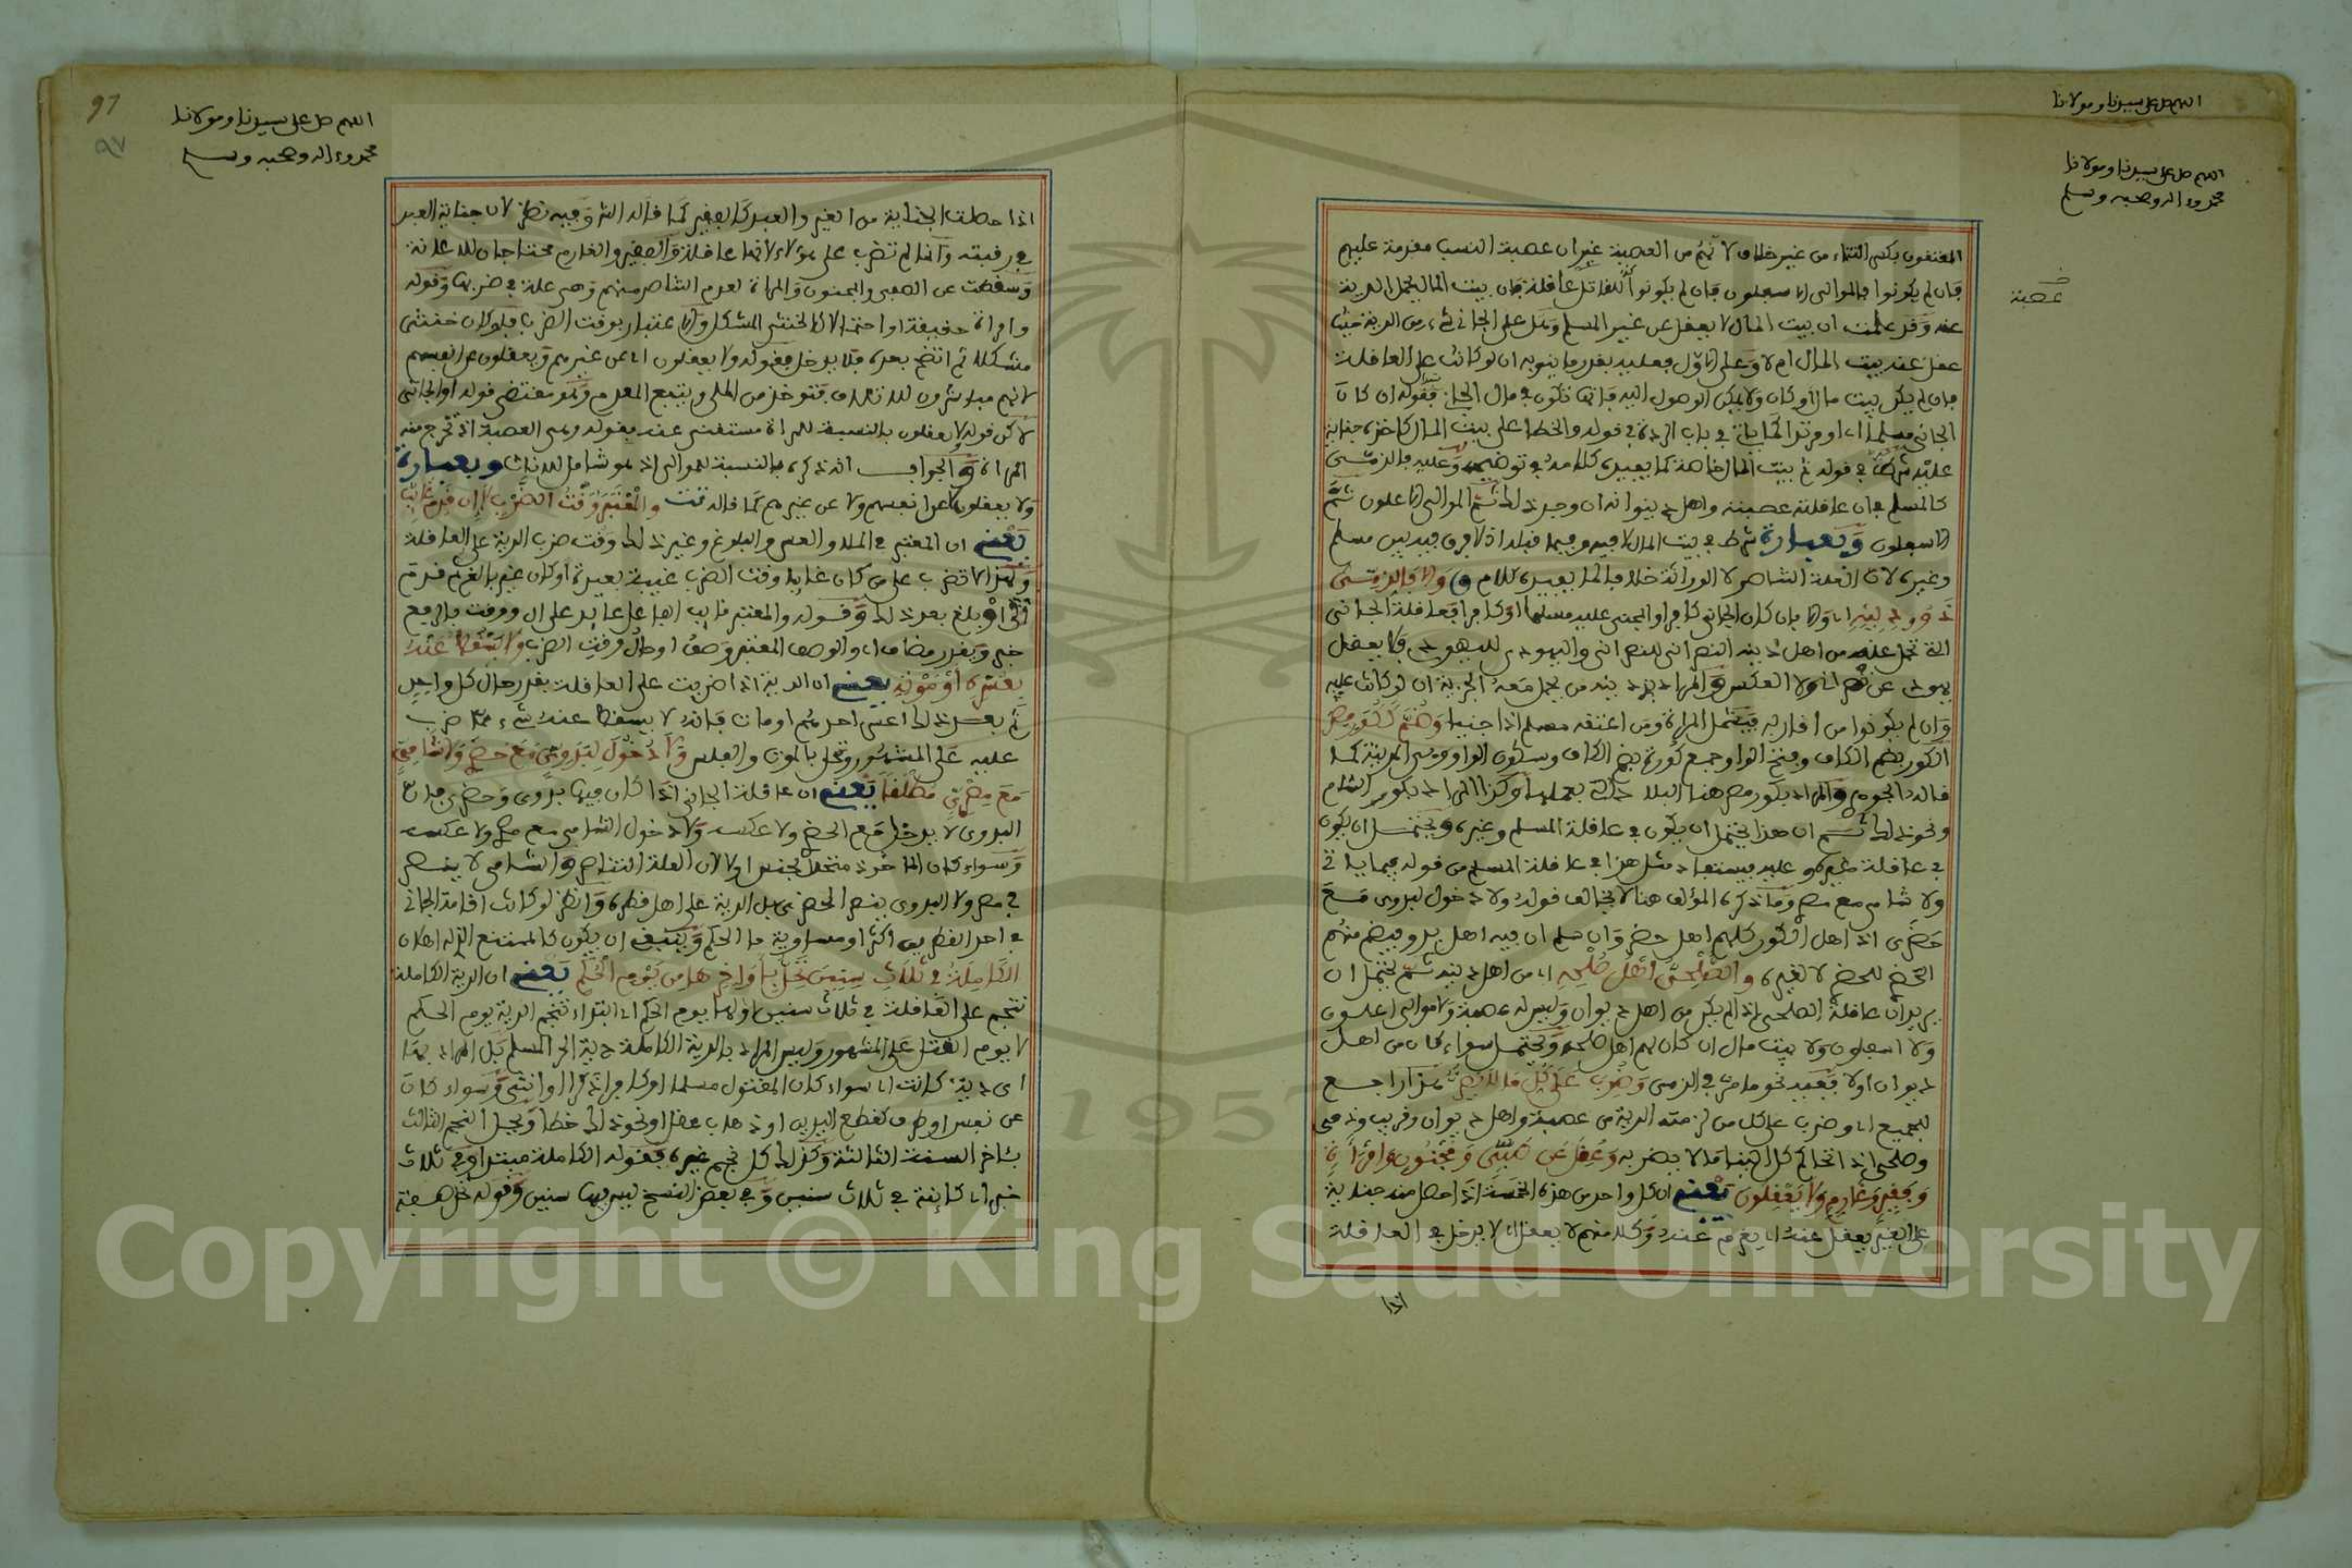 اللهم صل على سيدنا ومولانا
اللهم صل على سيدنا ومولانا
محمد وءاله وصحبه وسلم
عصبة
المعتقون بكسر التاء من غير خلاف لانهم من العصبة غير ان عصبة النسب مقدمة عليهم
فان لم يكونوا فالموالي الاسفلون فان لم يكونوا للقاتل عاقلة فان بيت المال يحمل الدية
عنه وقد علمت ان بيت المال لا يعقل عن غير المسلم وهل على الجاني شيء من الدية حيث
عقل عنه بيت المال ام لا وعلى الاول فعليه بقدر ما ينوبه ان لو كانت على العاقلة
فان لم يكن بيت مال او كان ولا يمكن الوصول اليه فانها تكون في مال الجاني فقوله ان كان
الجاني مسلما اي او مرتدا كما ياتي في باب الردة في قوله والخطا على بيت المال كاخذه جناية
عليه شرط في قوله ثم بيت المال خاصة كما يفيده كلامه في توضيحه وعليه فالذمي
كالمسلم في ان عاقلته عصبته واهل ديوانه ان وجد ذلك ثم الموالي الاعلون ثم
الاسفلون وبعبارة شرط في بيت المال لا فيه وفيما قبله اذ لا فرق فيه بين مسلم
وغيره لان العلة التناصر لا الوراثة خلافا لما يفيده كلام و والا فالذمي
ذوو دينه اي والا بان كان الجاني كافرا والمجني عليه مسلما او كافرا فعاقلة الجاني
التي تحمل عنه من اهل دينه النصراني للنصراني واليهودي لليهودي ولا يعقل
يهودي عن نصراني ولا العكس والمراد بذي دينه من يحمل معه الجزية ان لو كانت عليه
وان لم يكونوا من اقاربه فيشمل المراة ومن اعتقه مسلم اذا جنيا وضم ككور مصر
الكور بضم الكاف وفتح الواو جمع كورة بضم الكاف وسكون الواو وهي المدينة كما
قاله الجوهري والمراد بكور مصر هنا البلاد التي بعملها وكذا المراد بكور الشام
ونحو ذلك ثم ان هذا يحتمل ان يكون في عاقلة المسلم وغيره ويحتمل ان يكون
في عاقلة غيره هو عليه فيستفاد مثل هذا في عاقلة المسلم من قوله فيما ياتي
ولا شامي مع مصري وما ذكره المؤلف هنا لا يخالف قوله ولا دخول لبدوي مع
حضري اذ اهل الكور كلهم اهل حضر وان سلم ان فيه اهل بدو فيضم منهم
الحضر للحضر لا لغيره والصلحي اهل صلحه اي من اهل دينه ثم يحتمل ان
يريد ان عاقلة الصلحي اذا لم يكن من اهل ديوان وليس له عصبة ولا موالي اعلون
ولا اسفلون ولا بيت مال ان كان لهم اهل صلحه ويحتمل سواء كان من اهل
ديوان اولا فيفيد نحو ما مر في الذمي وضرب على كل ما لا يضر هذا راجع
للجميع اي وضرب على كل من لزمته الدية من عصبة واهل ديوان وقريب وذمي
وصلحي اذا تحاكم كل الينا ما لا يضر به وعقل عن صبي ومجنون وامراة
وفقير وغارم ولا يعقلون يعني ان كل واحد من هذه الخمسة اذا حصل منه جناية
على الغير يعقل عنه اي يغرم عنه وكل منهم لا يعقل اي لا يدخل في العاقلة
اذا
97
٩٧
اللهم صل على سيدنا ومولانا
محمد وءاله وصحبه وسلم
اذا حصلت الجناية من الغير والعبد كالفقير كما قاله الشر وفيه نظر لان جناية العبد
في رقبته وانما لم تضرب على هؤلاء لانها عاقلة والفقير والغارم محتاجان للاعانة
وسقطت عن الصبي والمجنون والمراة لعدم التناصر منهم وهي علة في ضربها وقوله
وامراة حقيقة او احتمالا كالخنثى المشكل والاعتبار بوقت الضرب فلو كان خنثى
مشكلا ثم اتضح بعده فلا يدخل فقوله ولا يعقلون اي عن غيرهم ويعقلون عن انفسهم
لانهم مباشرون للاتلاف فتؤخذ من الملي ويتبع المعدم وهو مقتضى قوله او الجاني
لاكن قوله لا يعقلون بالنسبة للمراة مستغنى عنه بقوله وهي العصبة اذ تخرج منه
المراة والجواب انه ذكره بالنسبة للموالي اذ هو شامل للاناث وبعبارة
ولا يعقلون اي عن انفسهم ولا عن غيرهم كما قاله تت والمعتبر وقت الضرب لا ان قدم غائب
يعني ان المعتبر في الملا والعسر والبلوغ وغير ذلك وقت ضرب الدية على العاقلة
وكذا لا تضرب على من كان غائبا وقت الضرب غيبة بعيدة او كان غير بالغ ثم قدم
ذلك او بلغ بعد ذلك وقوله والمعتبر نائب الفاعل عائد على ال ووقت بالرفع
خبر ويقدر مضاف اي والوصف المعتبر وصف او حال وقت الضرب ولا يسقط عنه
بعسره او موته يعني ان الدية اذا ضربت على العاقلة بقدر حال كل واحد
ثم بعد ذلك اعسر احدهم او مات فانه لا يسقط عنه شيء مما ضرب
عليه على المشهور وتحل بالموت والفلس ولا دخول لبدوي مع حضري ولا شامي
مع مصري مطلقا يعني ان عاقلة الجاني اذا كان فيها بدوي وحضري فان
البدوي لا يدخل مع الحضري ولا عكسه ولا دخول الشامي مع مصري ولا عكسه
وسواء كان الماخوذ متحد الجنس اولا لان العلة التناصر والشامي لا ينصر
في مصر ولا البدوي ينصر الحضري بل الدية على اهل قطره وانظر لو كانت اقامة الجاني
في احد القطرين اكثر او مساوية ما الحكم وينبغي ان يكون كالمتمتع الذي له اهلان
الكاملة في ثلاث سنين تحل باواخرها من يوم الحكم يعني ان الدية الكاملة
تنجم على العاقلة في ثلاث سنين اولها يوم الحكم اي ابتداء تنجيم الدية يوم الحكم
لا يوم القتل على المشهور وليس المراد بالدية الكاملة دية الحر المسلم بل المراد بها
اي دية كانت اي سواء كان المقتول مسلما او كافرا ذكرا او انثى وسواء كان
عن نفس او طرف كقطع اليدين او ذهاب عقل او نحو ذلك خطا ويحل النجم الثالث
بئاخر السنة الثالثة وكذلك كل نجم غيره فقوله الكاملة مبتدا وفي ثلاث
خبر اي كائنة في ثلاث سنين وفي بعض النسخ ليس فيها سنين وقوله تحل صفة
Copyright © King Saud University
1957